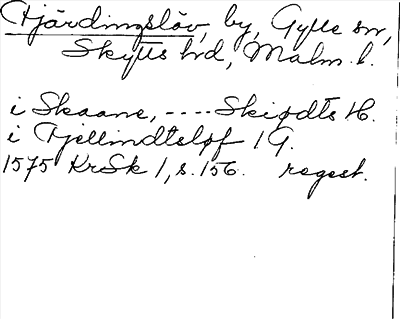 Fjärdingslöv, by, Gylle sn,
Skytts hd, Malm. l.
i Skaane, ---- Skiødts H.
i Fjellindtsløf 1 G.
1575 KrSk 1, s. 156. regest.